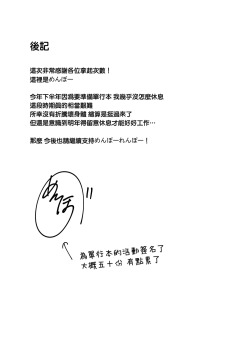 後記
這次非常感謝各位拿起次數！
這裡是めんぼー
今年下半年因為要準備單行本 我幾乎沒怎麼休息
這段時期真的相當艱難
所幸沒有折騰壞身體 總算是挺過來了
但還是意識到明年得留意休息才能好好工作…
那麼 今後也請繼續支持めんぼーれんぼー！
めんぼー
為單行本的活動簽名了
大概五十份 有點累了